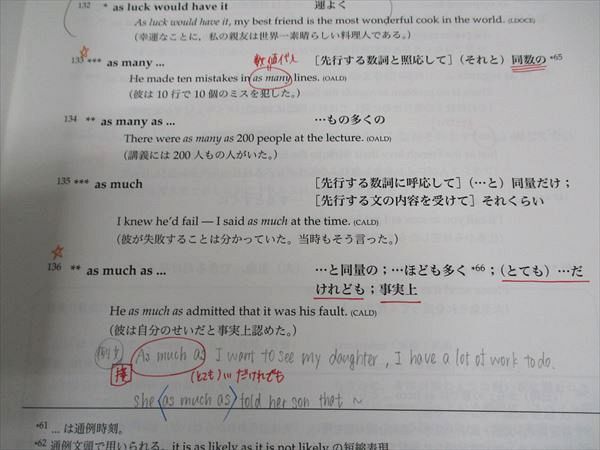 132 * as luck would have it 運よく
As luck would have it, my best friend is the most wonderful cook in the world. (LDOCE)
(幸運なことに,私の親友は世界一素晴らしい料理人である。)
数値代入
133 *** as many ... [先行する数詞と照応して](それと)同数の*65
He made ten mistakes in as many lines. (OALD)
(彼は 10 行で 10 個のミスを犯した。)
134 ** as many as ... …もの多くの
There were as many as 200 people at the lecture. (OALD)
(講義には 200 人もの人がいた。)
135 *** as much [先行する数詞に呼応して](…と)同量だけ;
[先行する文の内容を受けて]それくらい
I knew he'd fail — I said as much at the time. (CALD)
(彼が失敗することは分かっていた。当時もそう言った。)
136 ** as much as ... …と同量の;…ほども多く*66;(とても)…だ
けれども;事実上
He as much as admitted that it was his fault. (CALD)
(彼は自分のせいだと事実上認めた。)
例文 As much as I want to see my daughter, I have a lot of work to do.
接 (とても)…だけれども
she <as much as> told her son that ~
*61 ... は通例時刻。
*62 通例文頭で用いられる。it is as likely as it is not likely の短縮表現